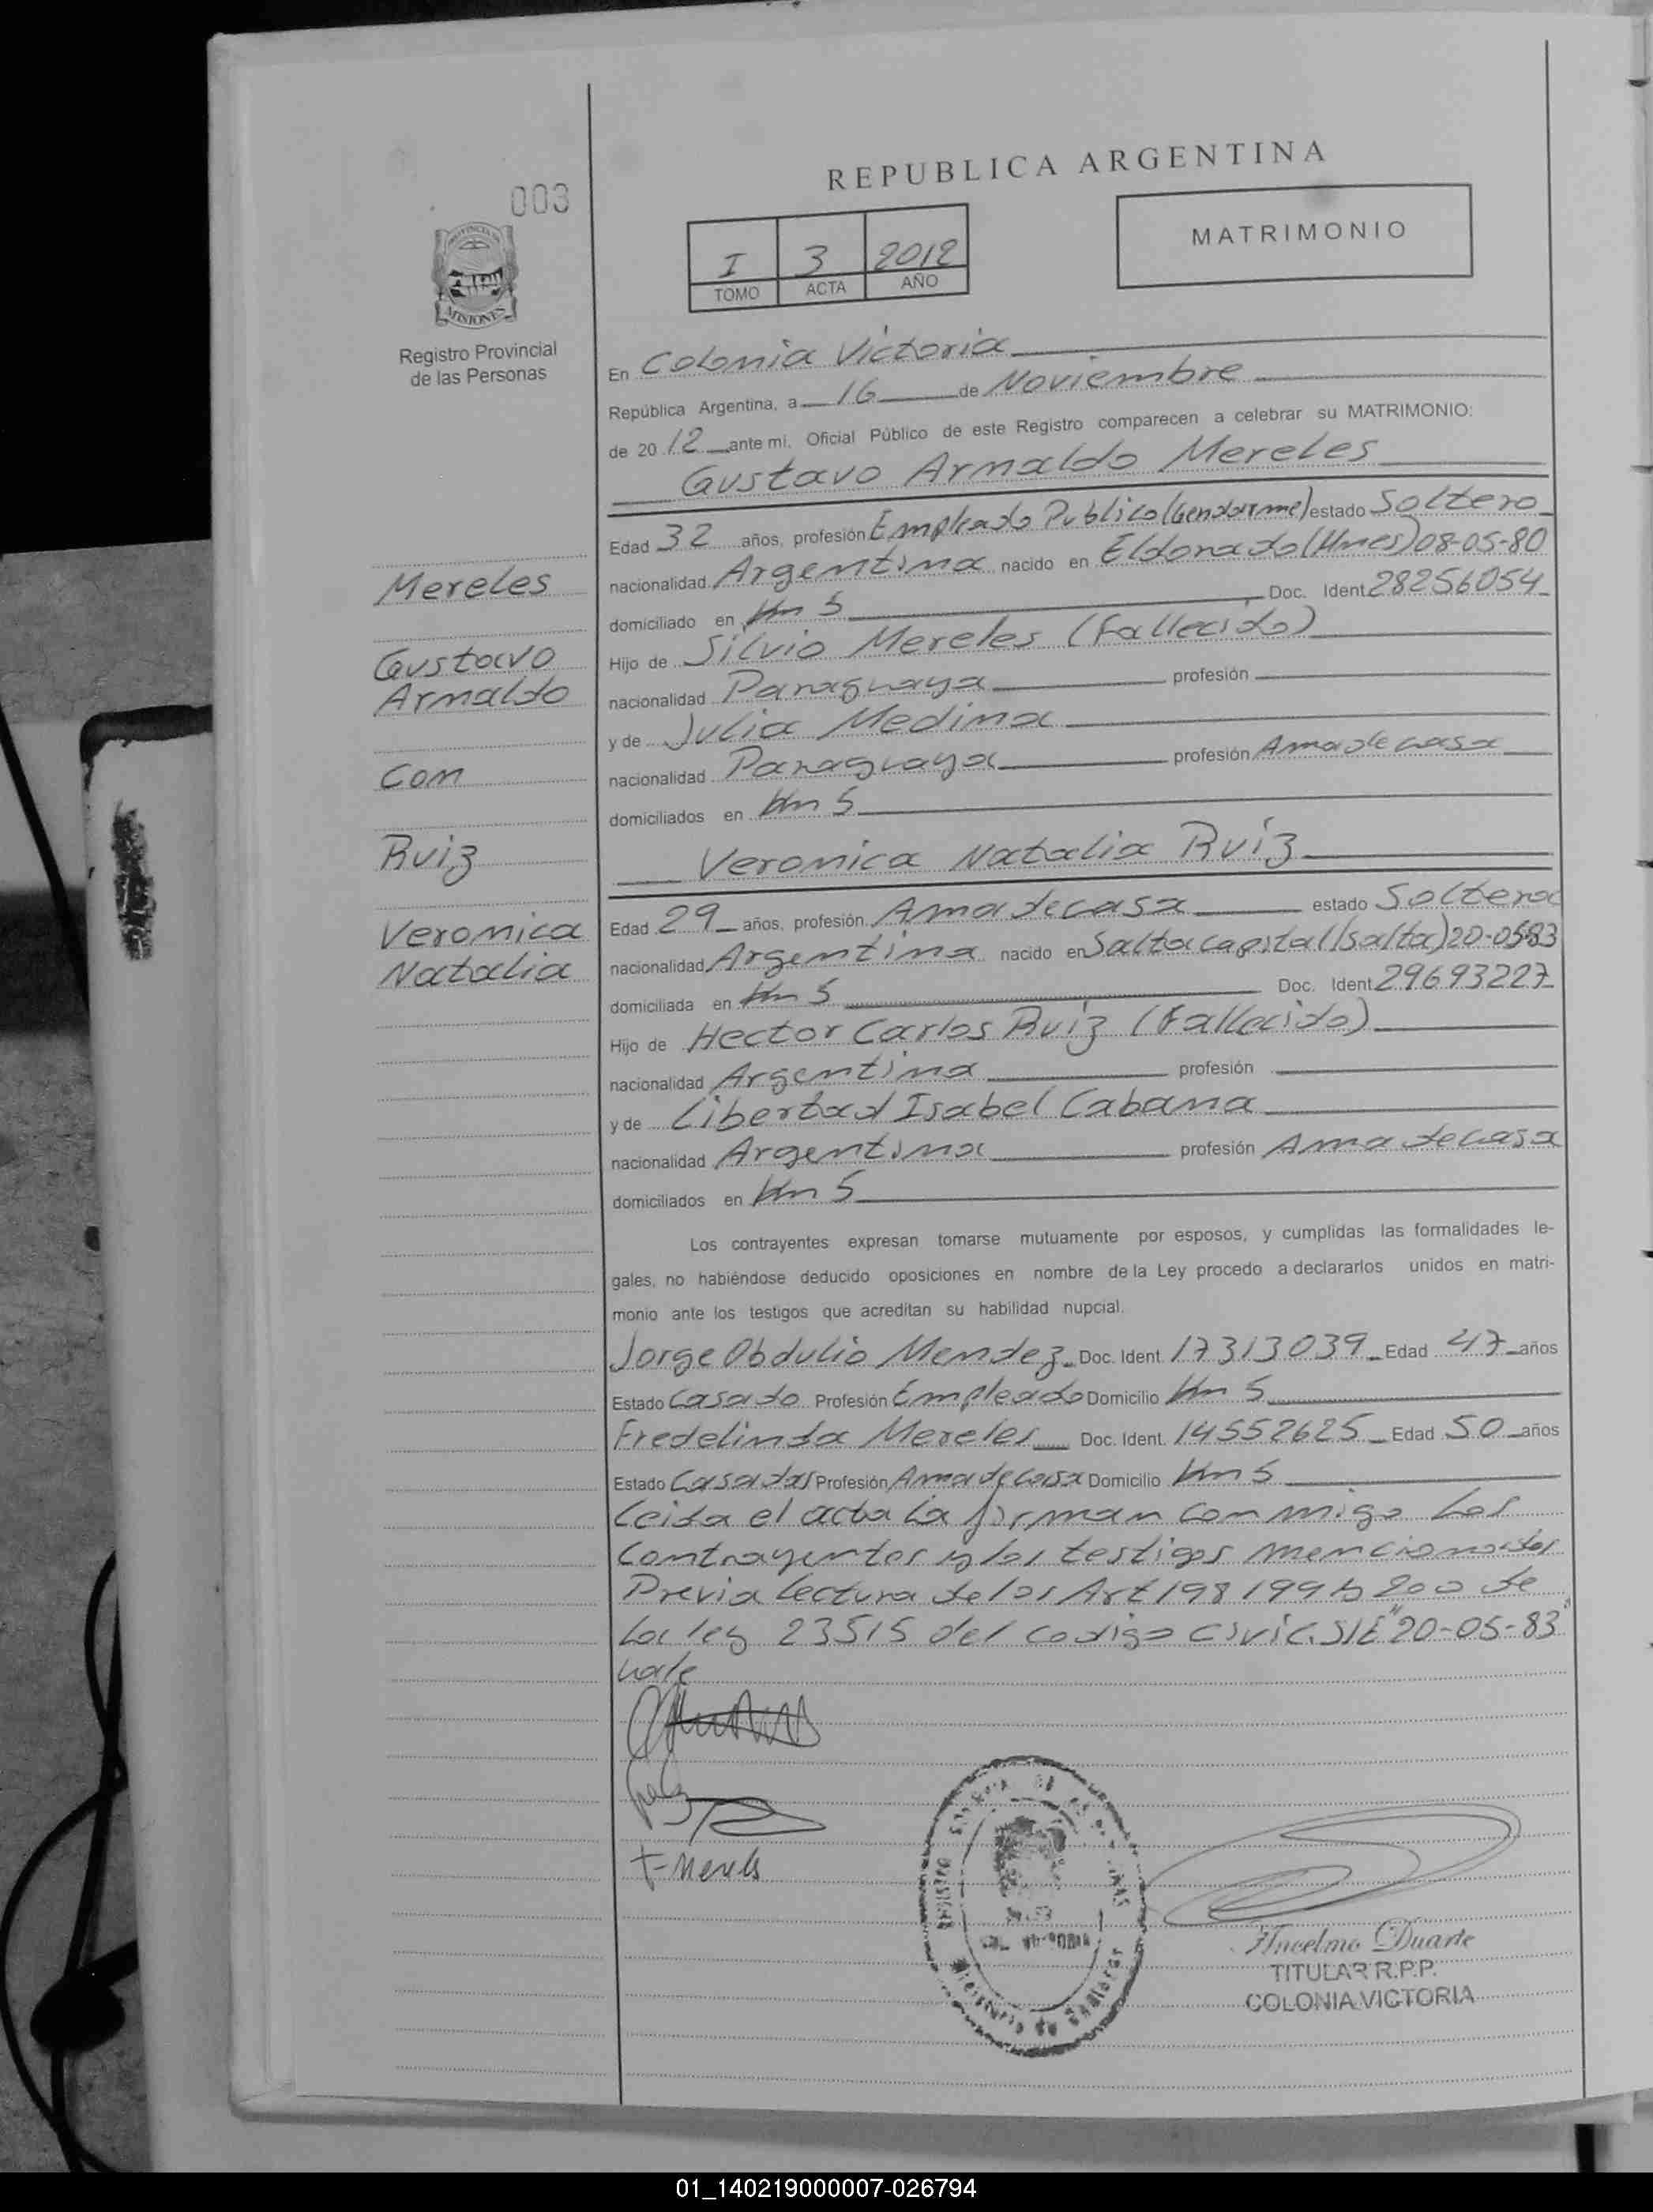 003
REPUBLICA ARGENTINA
I 3 2012
TOMO ACTA AÑO
MATRIMONIO
PROVINCIA DE
MISIONES
Registro Provincial
de las Personas
En Colonia Victoria
República Argentina, a 16 de Noviembre
de 20 12 ante mi, Oficial Público de este Registro comparecen a celebrar su MATRIMONIO:
Gustavo Arnaldo Mereles
Edad 32 años, profesión Empleado Publico (Gendarme) estado Soltero
nacionalidad Argentina nacido en Eldorado (Mnes) 08-05-80
domiciliado en Km 5 Doc. Ident 28256054
Hijo de Silvio Mereles (Fallecido)
nacionalidad Paraguaya profesión
y de Julia Medina
nacionalidad Paraguaya profesión Ama de casa
domiciliados en Km 5
Veronica Natalia Ruíz
Edad 29 años, profesión Ama de casa estado Soltera
nacionalidad Argentina nacido en Salta capital (Salta) 20-05-83
domiciliada en Km 5 Doc. Ident 29693227
Hijo de Hector Carlos Ruíz (Fallecido)
nacionalidad Argentina profesión
y de Libertad Isabel Cabana
nacionalidad Argentina profesión Ama de casa
domiciliados en Km 5
Los contrayentes expresan tomarse mutuamente por esposos, y cumplidas las formalidades le-
gales, no habiéndose deducido oposiciones en nombre de la Ley procedo a declararlos unidos en matri-
monio ante los testigos que acreditan su habilidad nupcial.
Jorge Obdulio Mendez Doc. Ident 17313039 Edad 47 años
Estado Casado Profesión Empleado Domicilio Km 5
Fredelinda Mereles Doc. Ident. 14552625 Edad 50 años
Estado Casada Profesión Ama de casa Domicilio Km 5
Leida el acta la firman con migo los
Contrayentes y los testigos mencionados
Previa lectura de los Art 198 199 y 200 de
la ley 23515 del codigo civic. S/E "20-05-83"
vale
Mereles
Gustavo
Arnaldo
Con
Ruiz
Veronica
Natalia
F-Merels
Ministerio de Gobierno
Ancelmo Duarte
TITULAR R.P.P.
COLONIA VICTORIA
01_140219000007-026794